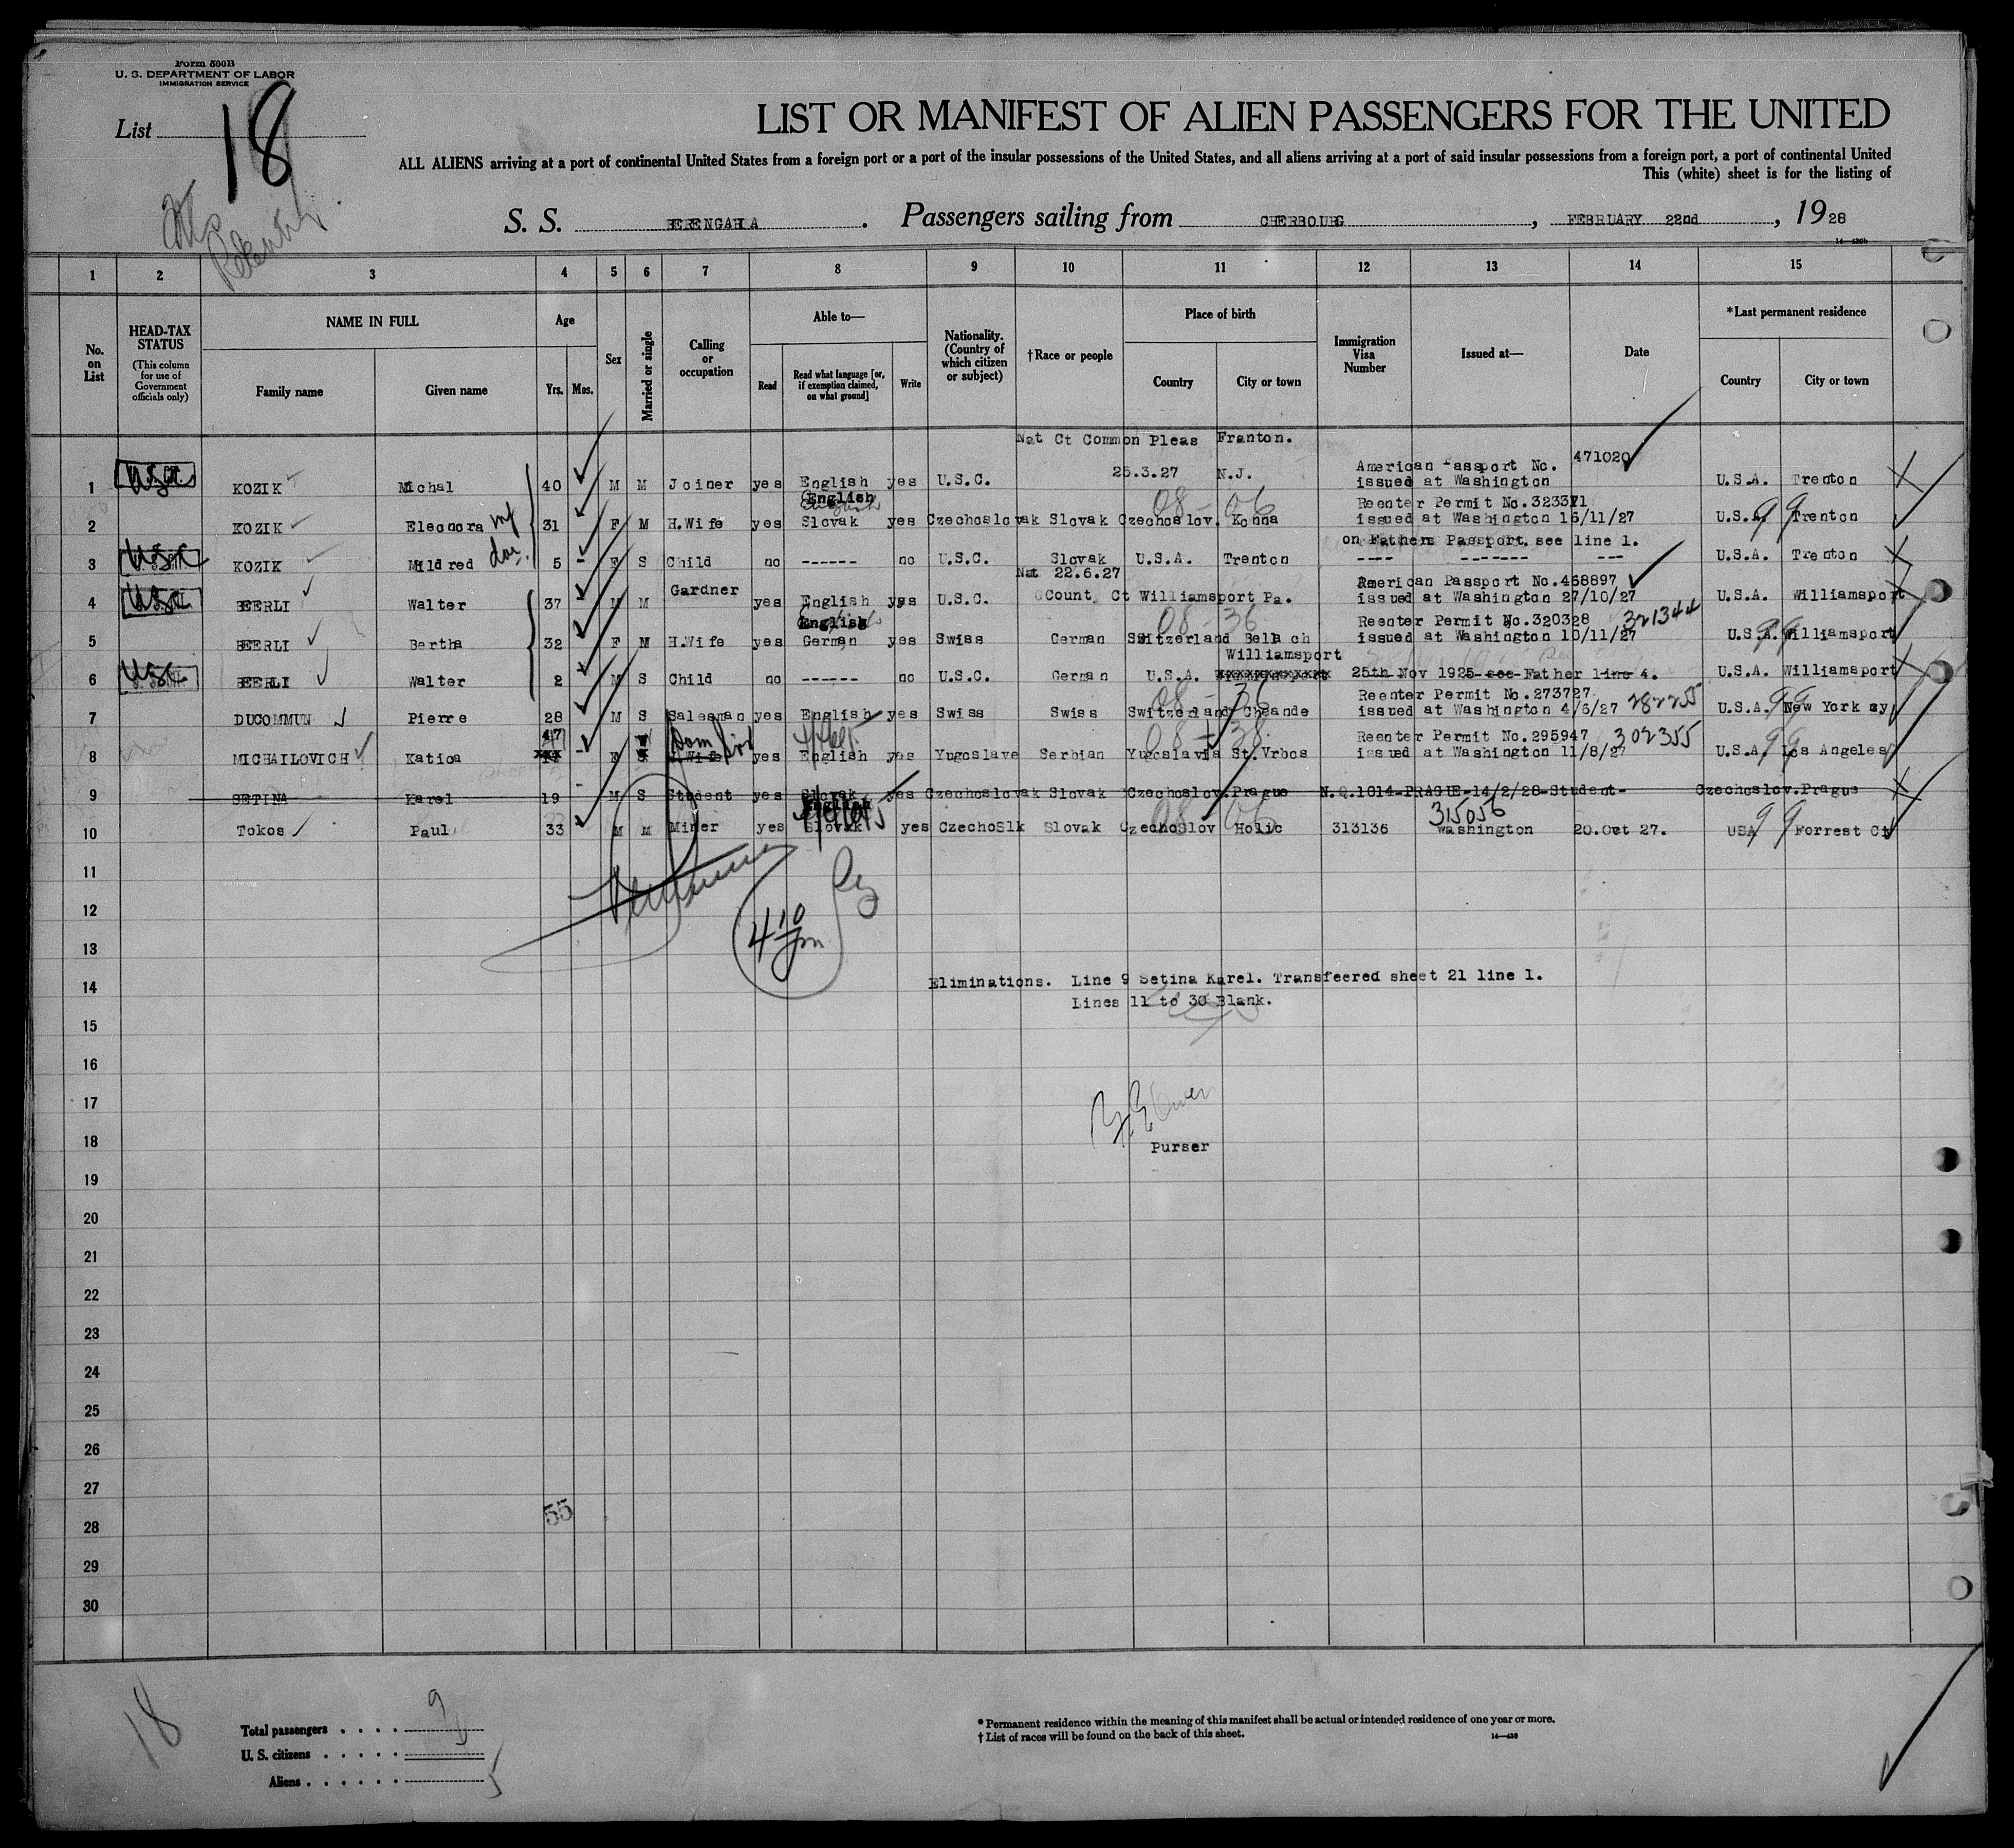 Form 500B
U. S. DEPARTMENT OF LABOR
IMMIGRATION SERVICE
List 18
LIST OR MANIFEST OF ALIEN PASSENGERS FOR THE UNITED
ALL ALIENS arriving at a port of continental United States from a foreign port or a port of the insular possessions of the United States, and all aliens arriving at a port of said insular possessions from a foreign port, a port of continental United
This (white) sheet is for the listing of
S. S. BERENGARIA. Passengers sailing from CHERBOURG, FEBRUARY 22nd, 1928
14—430b
1 2 3 4 5 6 7 8 9 10 11 12 13 14 15
No. on List
HEAD-TAX STATUS
(This column for use of Government officials only)
NAME IN FULL
Family name
Given name
Age
Yrs. Mos.
Sex
Married or single
Calling or occupation
Able to—
Read
Read what language [or, if exemption claimed, on what ground]
Write
Nationality. (Country of which citizen or subject)
†Race or people
Place of birth
Country
City or town
Immigration Visa Number
Issued at—
Date
*Last permanent residence
Country
City or town
Nat Ct Common Pleas Franton.
471020
25.3.27 N.J. American Passport No.
1 USC KOZIK Michal 40 M M Joiner yes English yes U.S.C. issued at Washington U.S.A. Trenton
English 08-06 Reenter Permit No.323371
2 KOZIK Eleonora wf 31 F M H.Wife yes Slovak yes Czechoslovak Slovak Czechoslov. Konna issued at Washington 16/11/27 U.S.A. 99 Trenton
on Fathers Passport. see line 1.
3 USC KOZIK Mildred dau. 5 - F S Child no ------ no U.S.C. Slovak U.S.A. Trenton ---- ------- --- U.S.A. Trenton
Nat 22.6.27 American Passport No.468897
4 USC BEERLI Walter 37 M M Gardner yes English yes U.S.C. Count Ct Williamsport Pa. issued at Washington 27/10/27 U.S.A. Williamsport
English 08-36 Reenter Permit No.320328 321344
5 BEERLI Bertha 32 F M H.Wife yes German yes Swiss German Switzerland Bellach issued at Washington 10/11/27 U.S.A. 99 Williamsport
Williamsport
6 USC BEERLI Walter 2 M S Child no ------ no U.S.C. German U.S.A. 25th Nov 1925 see Father line 4. U.S.A. Williamsport
08-36 Reenter Permit No.273727 282255
7 DUCOMMUN Pierre 28 M S Salesman yes English yes Swiss Swiss Switzerland Cheande issued at Washington 4/6/27 U.S.A. 99 New York
47 08-38 Reenter Permit No.295947 302355
8 MICHAILOVICH Katica - F yes English yes Yugoslave Serbian Yugoslavia St.Vrbos issued at Washington 11/8/27 U.S.A. 99 Los Angeles
9 SETINA Karel 19 - M S Student yes Slovak yes Czechoslovak Slovak Czechoslov. Prague N.Q.1014 PRAGUE 14/2/28 Student Czechoslov. Prague
English 08-06 315056
10 Tokos Paul 33 M M Miner yes Slovak yes CzechoSlk Slovak CzechoSlov Holic 313136 Washington 20.Oct 27. USA 99 Forrest Ct
11
12
13
4 10
14 Eliminations. Line 9 Setina Karel. Transfeered sheet 21 line 1.
Lines 11 to 30 Blank.
15
16
17
18
Purser
19
20
21
22
23
24
25
26
27
55
28
29
30
18
Total passengers . . . . 9
U. S. citizens . . . . .
Aliens . . . . . . 5
* Permanent residence within the meaning of this manifest shall be actual or intended residence of one year or more.
† List of races will be found on the back of this sheet.
14—430